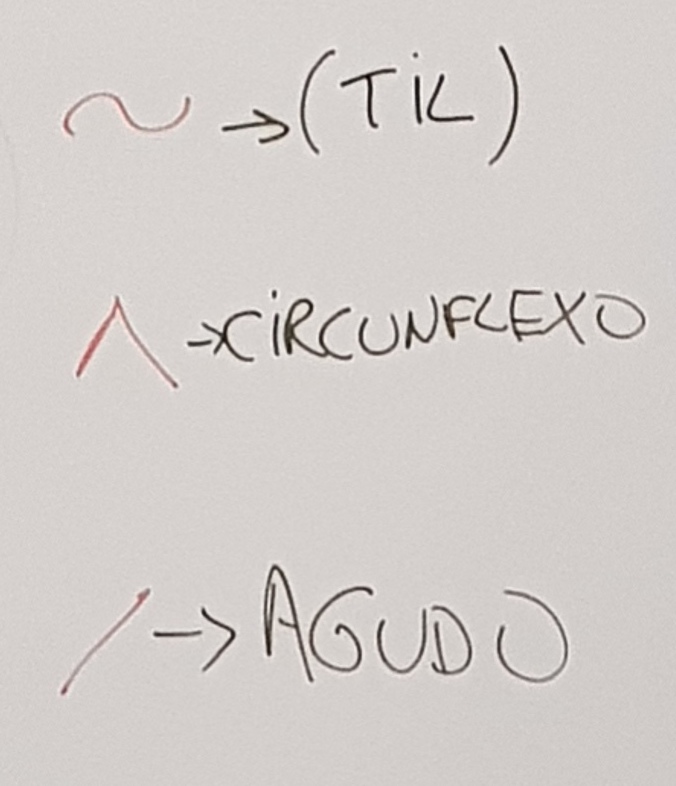 ~ → (TiL)
^ → CiRCUNFLEXO
/ → AGUDO